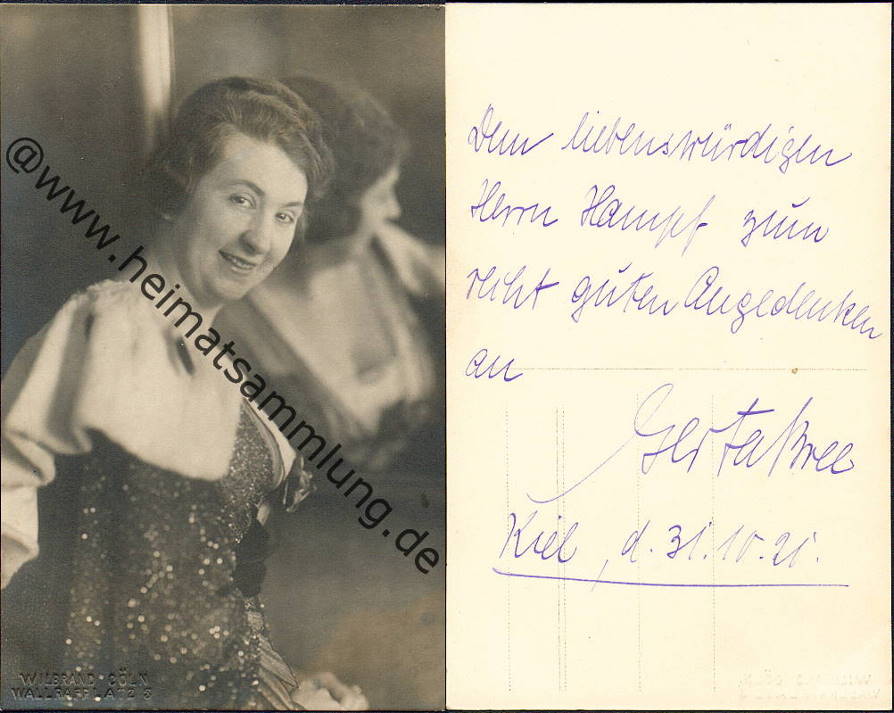 @www.heimatsammlung.de
WILBRAND CÖLN
WALLRAFPLATZ 3
Dem liebenswürdigen
Herrn Hampf zum
recht guten Angedenken
an
Gerta Bree
Kiel, d. 31.10.21.